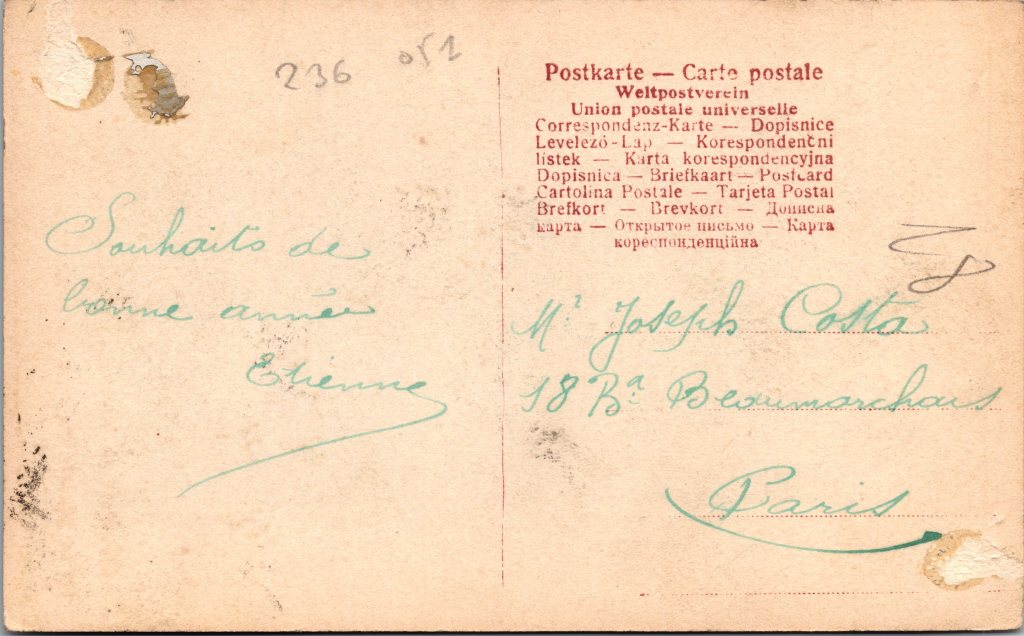 236
Postkarte — Carte postale
Weltpostverein
Union postale universelle
Correspondenz-Karte — Dopisnice
Levelező-Lap — Korespondenční
lístek — Karta korespondencyjna
Dopisnica — Briefkaart — Postcard
Cartolina Postale — Tarjeta Postal
Brefkort — Brevkort — Дописна
карта — Открытое письмо — Карта
кореспонденційна
Souhaits de
bonne année
Etienne
Mr Joseph Costa
18 Bd Beaumarchais
Paris